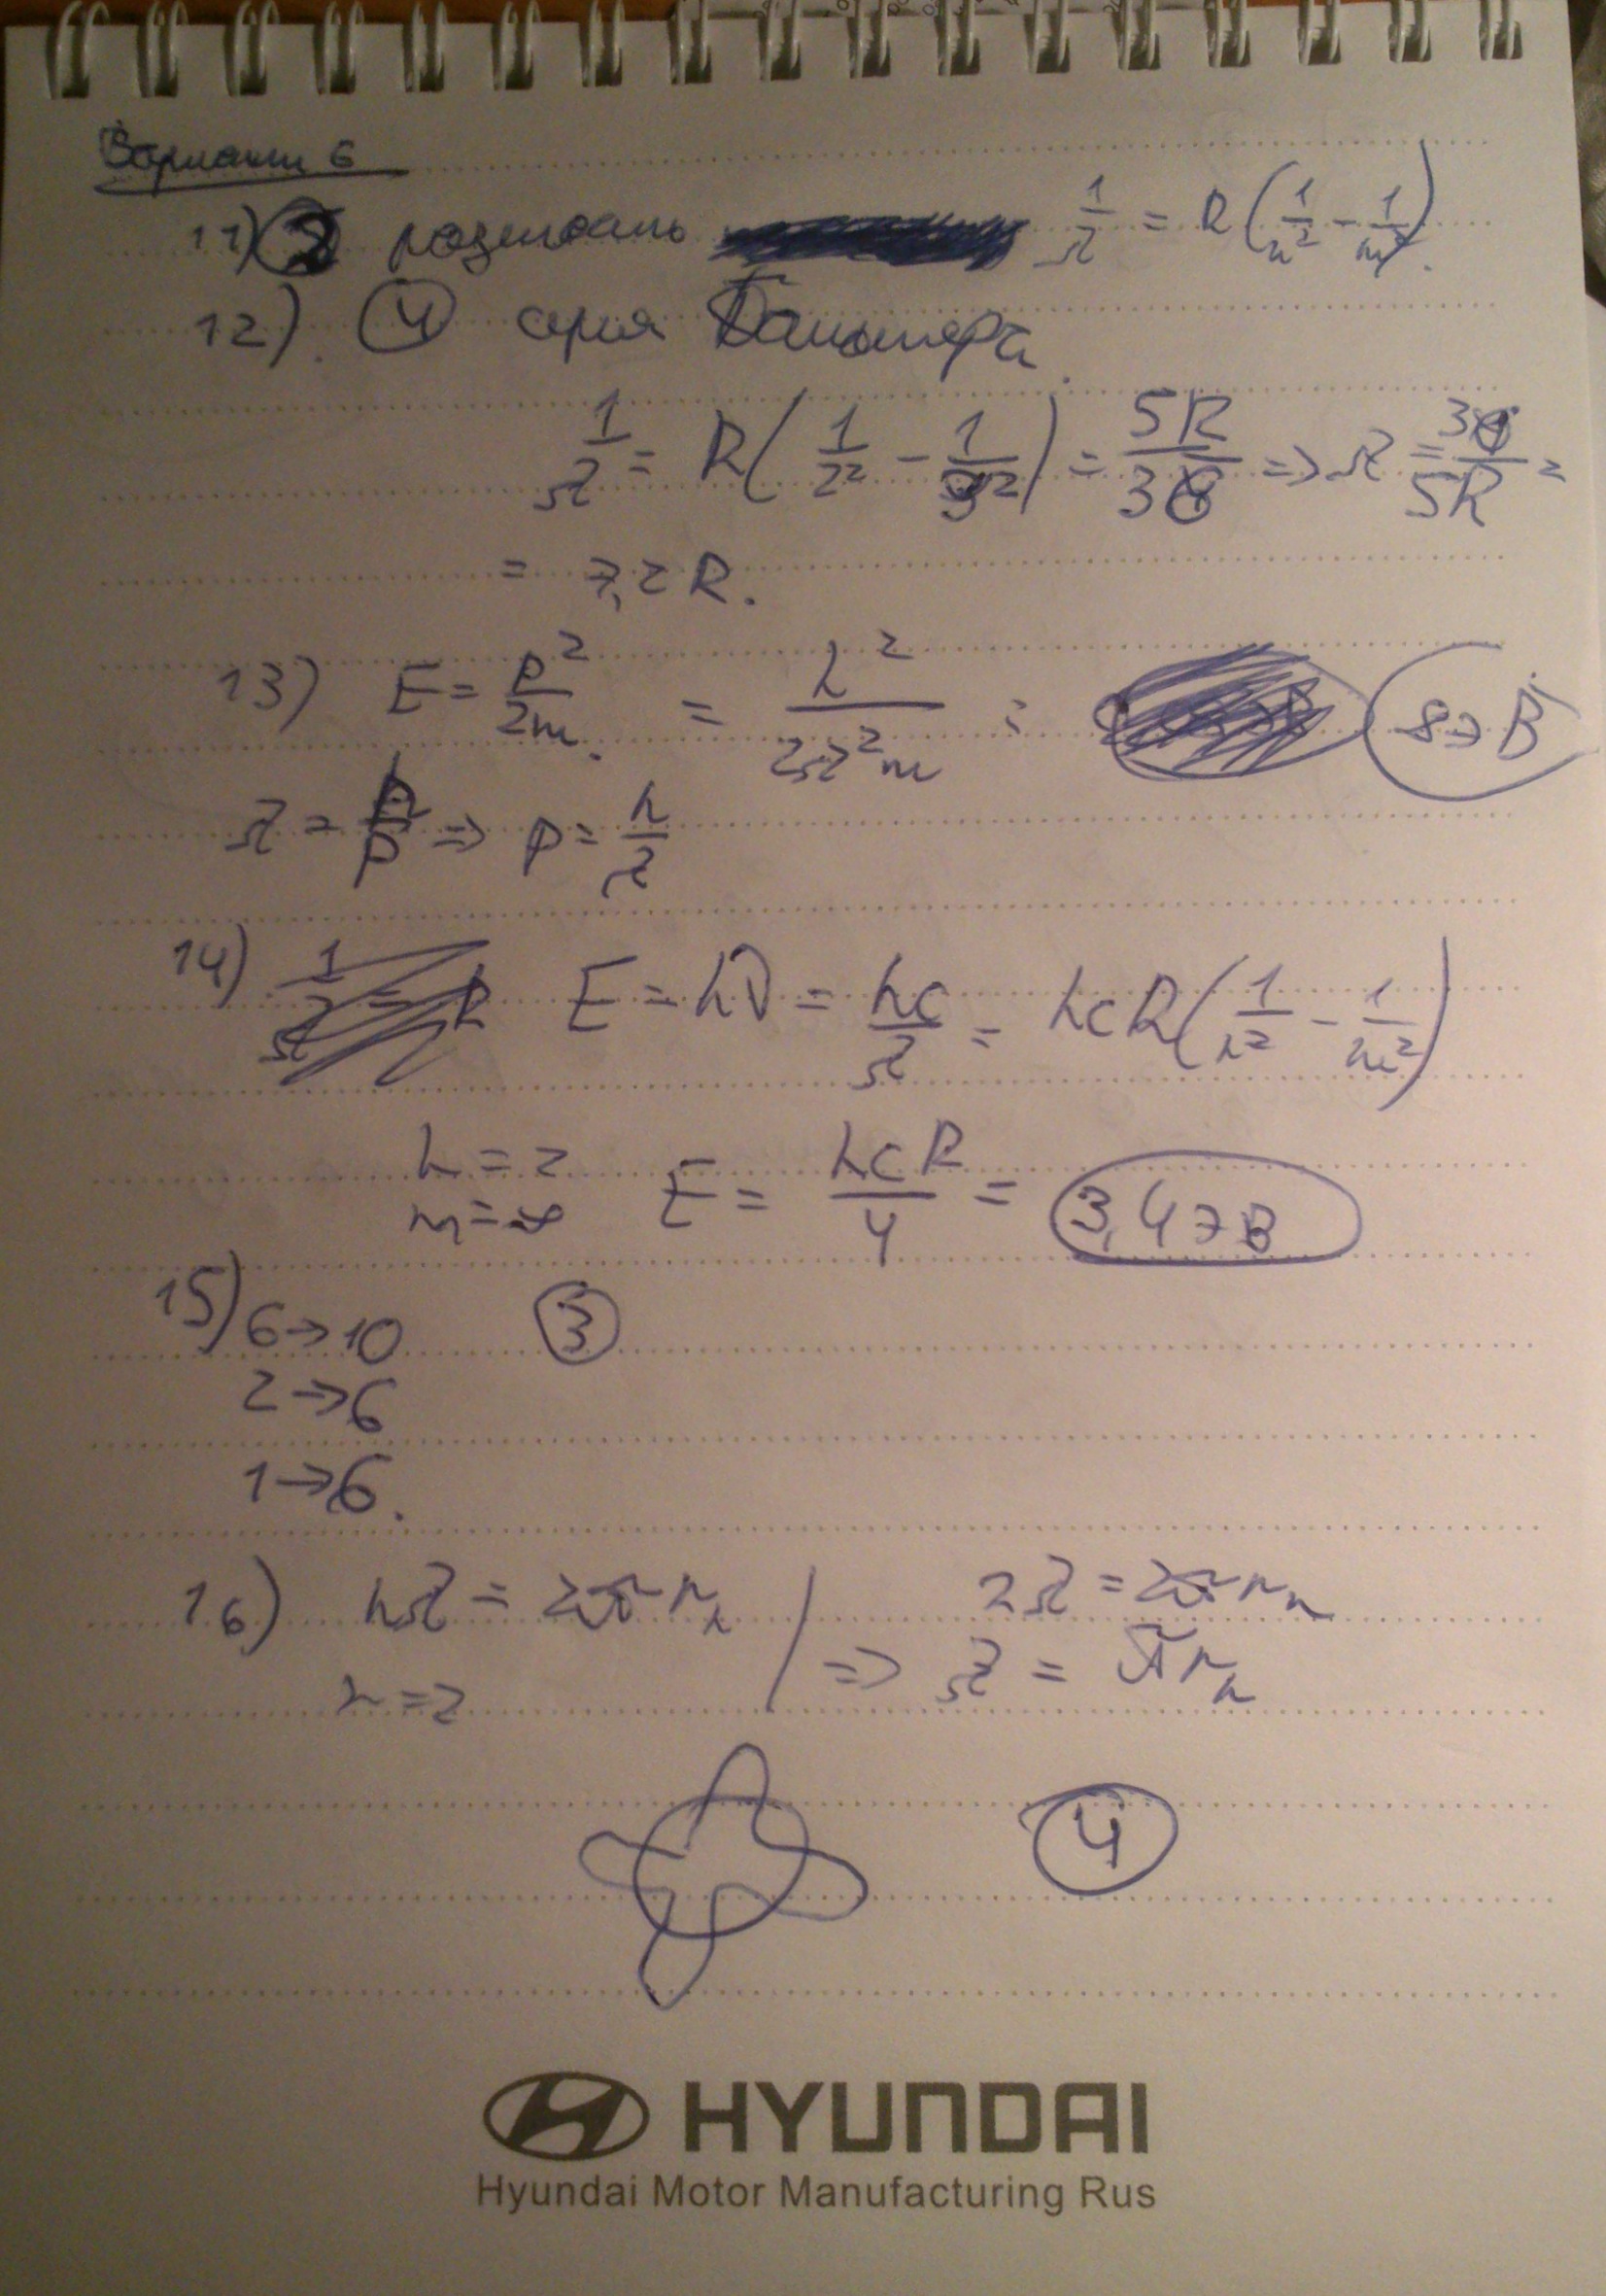 Вариант 6
11) 2 разность 1/λ = R(1/n² - 1/m²).
12). 4 серия Бальмера.
1/λ = R(1/2² - 1/3²) = 5R/36 => λ = 36/5R =
= 7,2 R.
13) E = p²/2m. = h²/2λ²m = 8эВ
λ = h/p => p = h/λ
14) E = hν = hc/λ = hcR(1/n² - 1/m²)
n = 2
m = ∞ E = hcR/4 = 3,4эВ
15) 6→10 3
2→6
1→6.
16) nλ = 2πrₙ 2λ = 2πrₙ
n = 2 => λ = πrₙ
4
HYUNDAI
Hyundai Motor Manufacturing Rus